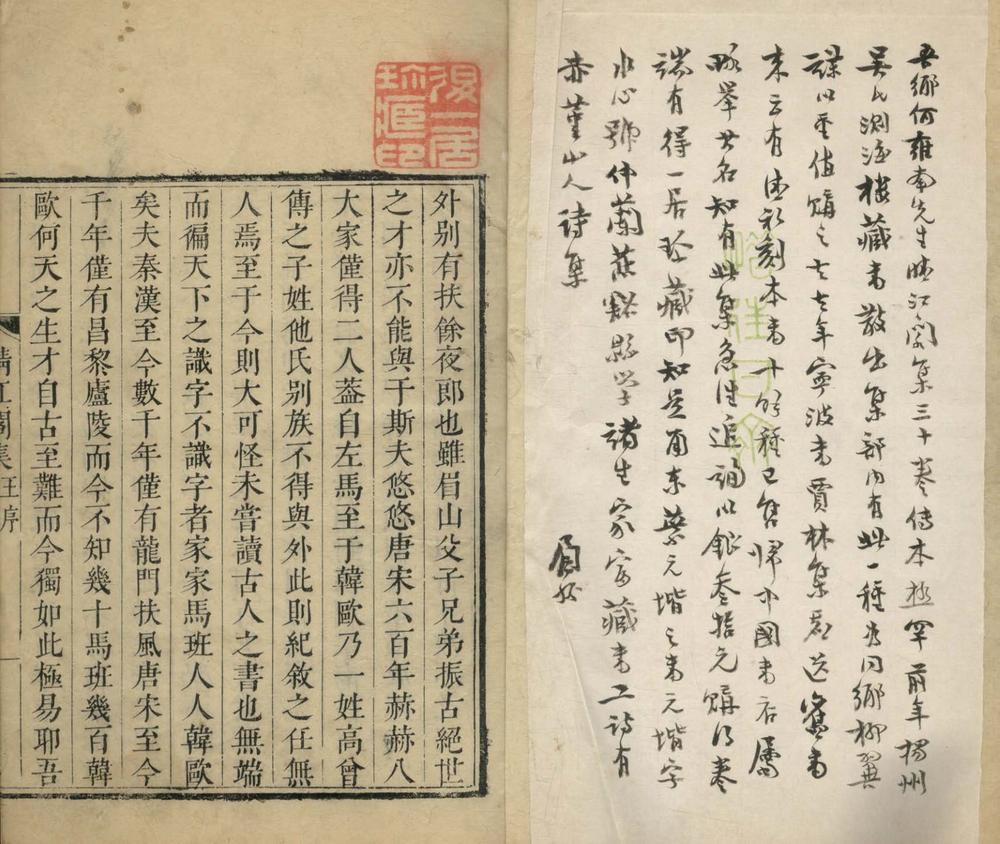 吾鄉何雍南先生晴江閣集三十卷傳本極罕前年揚州
吳氏測海樓藏書散出集部內有此一種為同鄉柳翼
謀以重值購之去去年寧波書賈林集 送舊書
來云有清初刻本書十餘種已售歸中國書店屬
略舉其名知有此集急往追詢以銀叁拾元購得卷
端有得一居珍藏印知是甬東蔡元 之書元 字
水心號仲蘭 谿縣學諸生家富藏書工詩有
赤堇山人詩集
得一居珍藏印
外別有扶餘夜郎也雖眉山父子兄弟振古絕世
之才亦不能與于斯夫悠悠唐宋六百年赫赫八
大家僅得二人葢自左馬至于韓歐乃一姓高曾
傳之子姓他氏別族不得與外此則紀敘之任無
人焉至于今則大可怪未嘗讀古人之書也無端
而徧天下之識字不識字者家家馬班人人韓歐
矣夫秦漢至今數千年僅有龍門扶風唐宋至今
千年僅有昌黎廬陵而今不知幾十馬班幾百韓
歐何天之生才自古至難而今獨如此極易耶吾
晴江閣集汪序
一